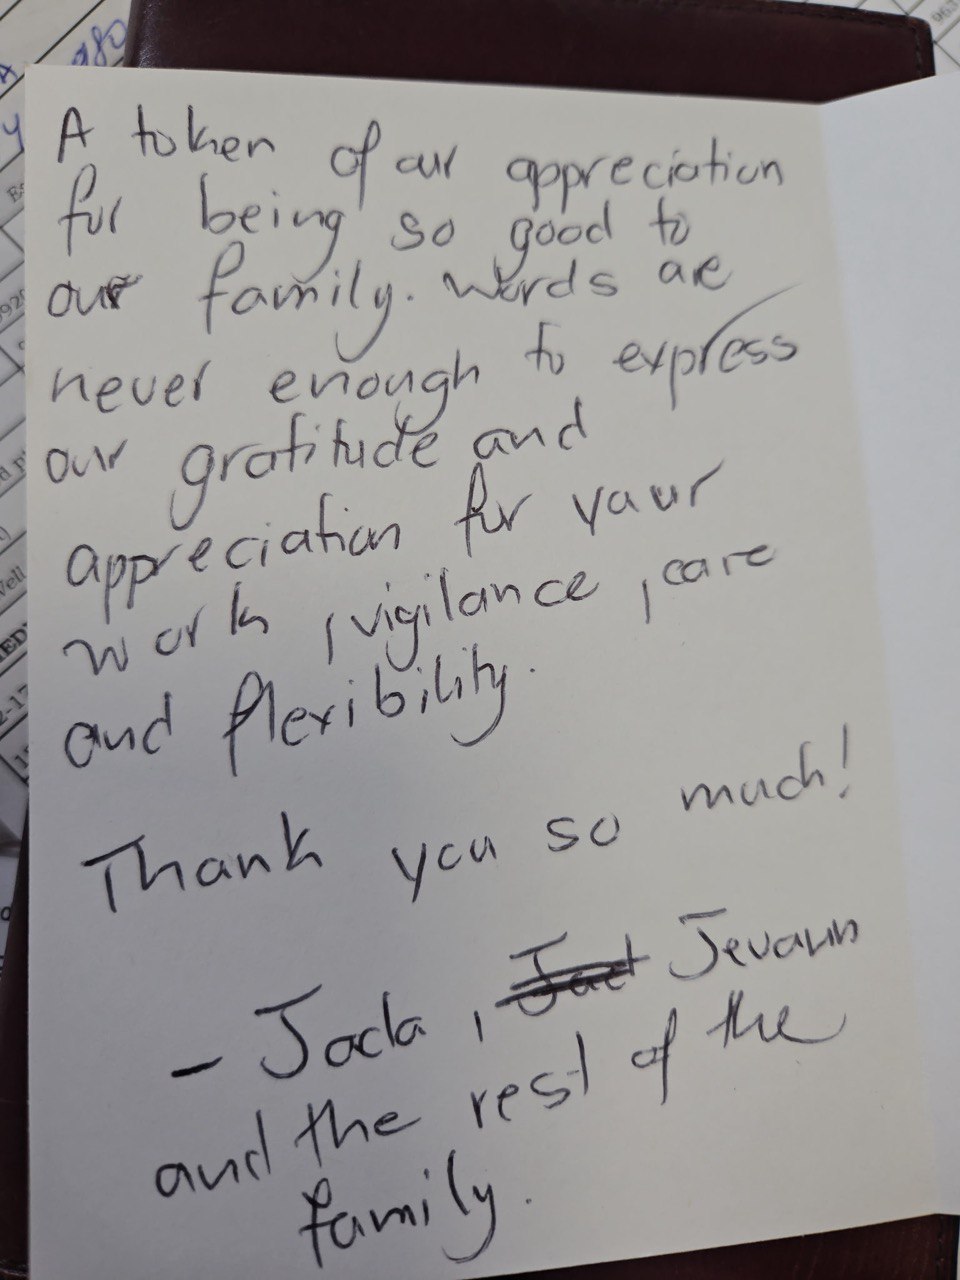 A token of our appreciation
for being so good to
our family. Words are
never enough to express
our gratitude and
appreciation for your
work, vigilance, care
and flexibility.
Thank you so much!
- Jada, Jevaun
and the rest of the
family.